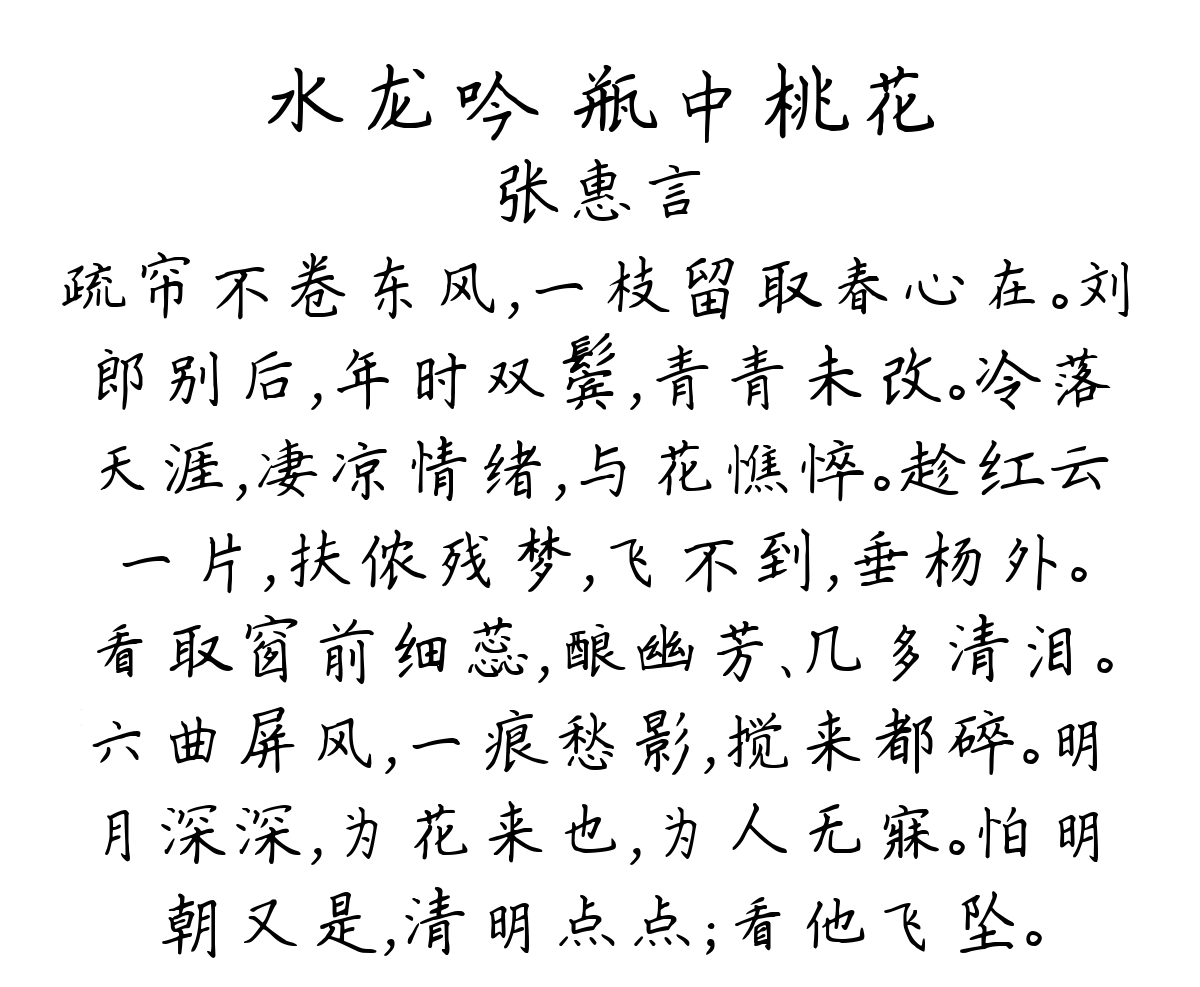 水龙吟 瓶中桃花
张惠言
疏帘不卷东风,一枝留取春心在。刘
郎别后,年时双鬓,青青未改。冷落
天涯,凄凉情绪,与花憔悴。趁红云
一片,扶侬残梦,飞不到,垂杨外。
看取窗前细蕊,酿幽芳、几多清泪。
六曲屏风,一痕愁影,搅来都碎。明
月深深,为花来也,为人无寐。怕明
朝又是,清明点点;看他飞坠。